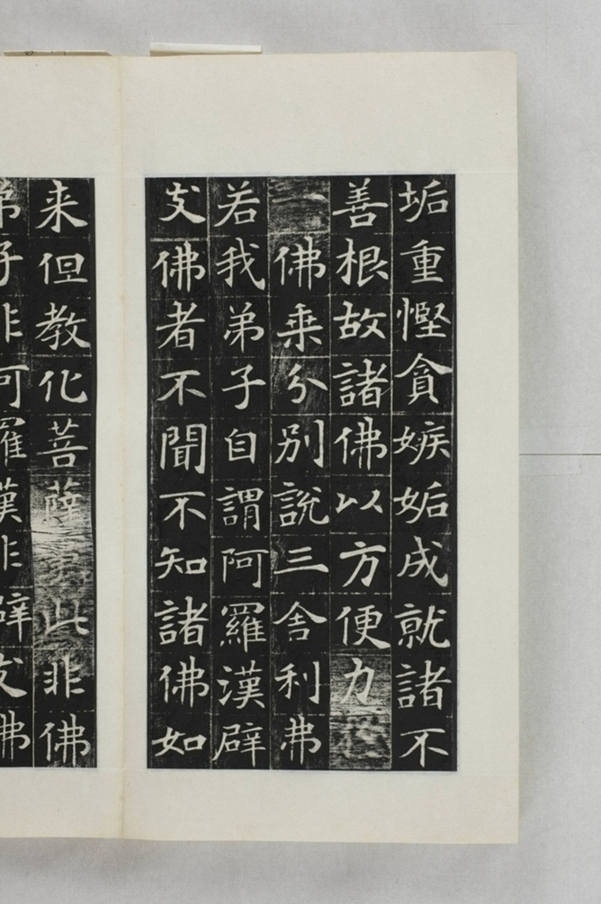 垢重慳貪嫉妬成就諸不
善根故諸佛以方便力
一佛乗分別說三舎利弗
若我弟子自謂阿羅漢辟
支佛者不聞不知諸佛如
来但教化菩薩此非佛
弟子非阿羅漢非辟支佛